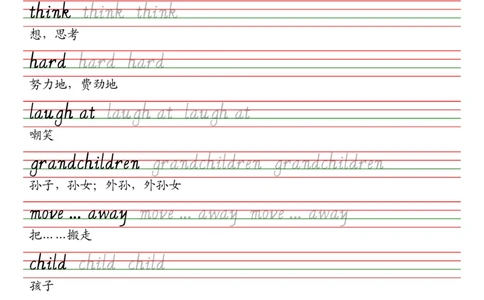 think think think
想，思考
hard hard hard
努力地，费劲地
laugh at laugh at laugh at
嘲笑
grandchildren grandchildren grandchildren
孙子，孙女；外孙，外孙女
move ... away move ... away move ... away
把……搬走
child child child
孩子